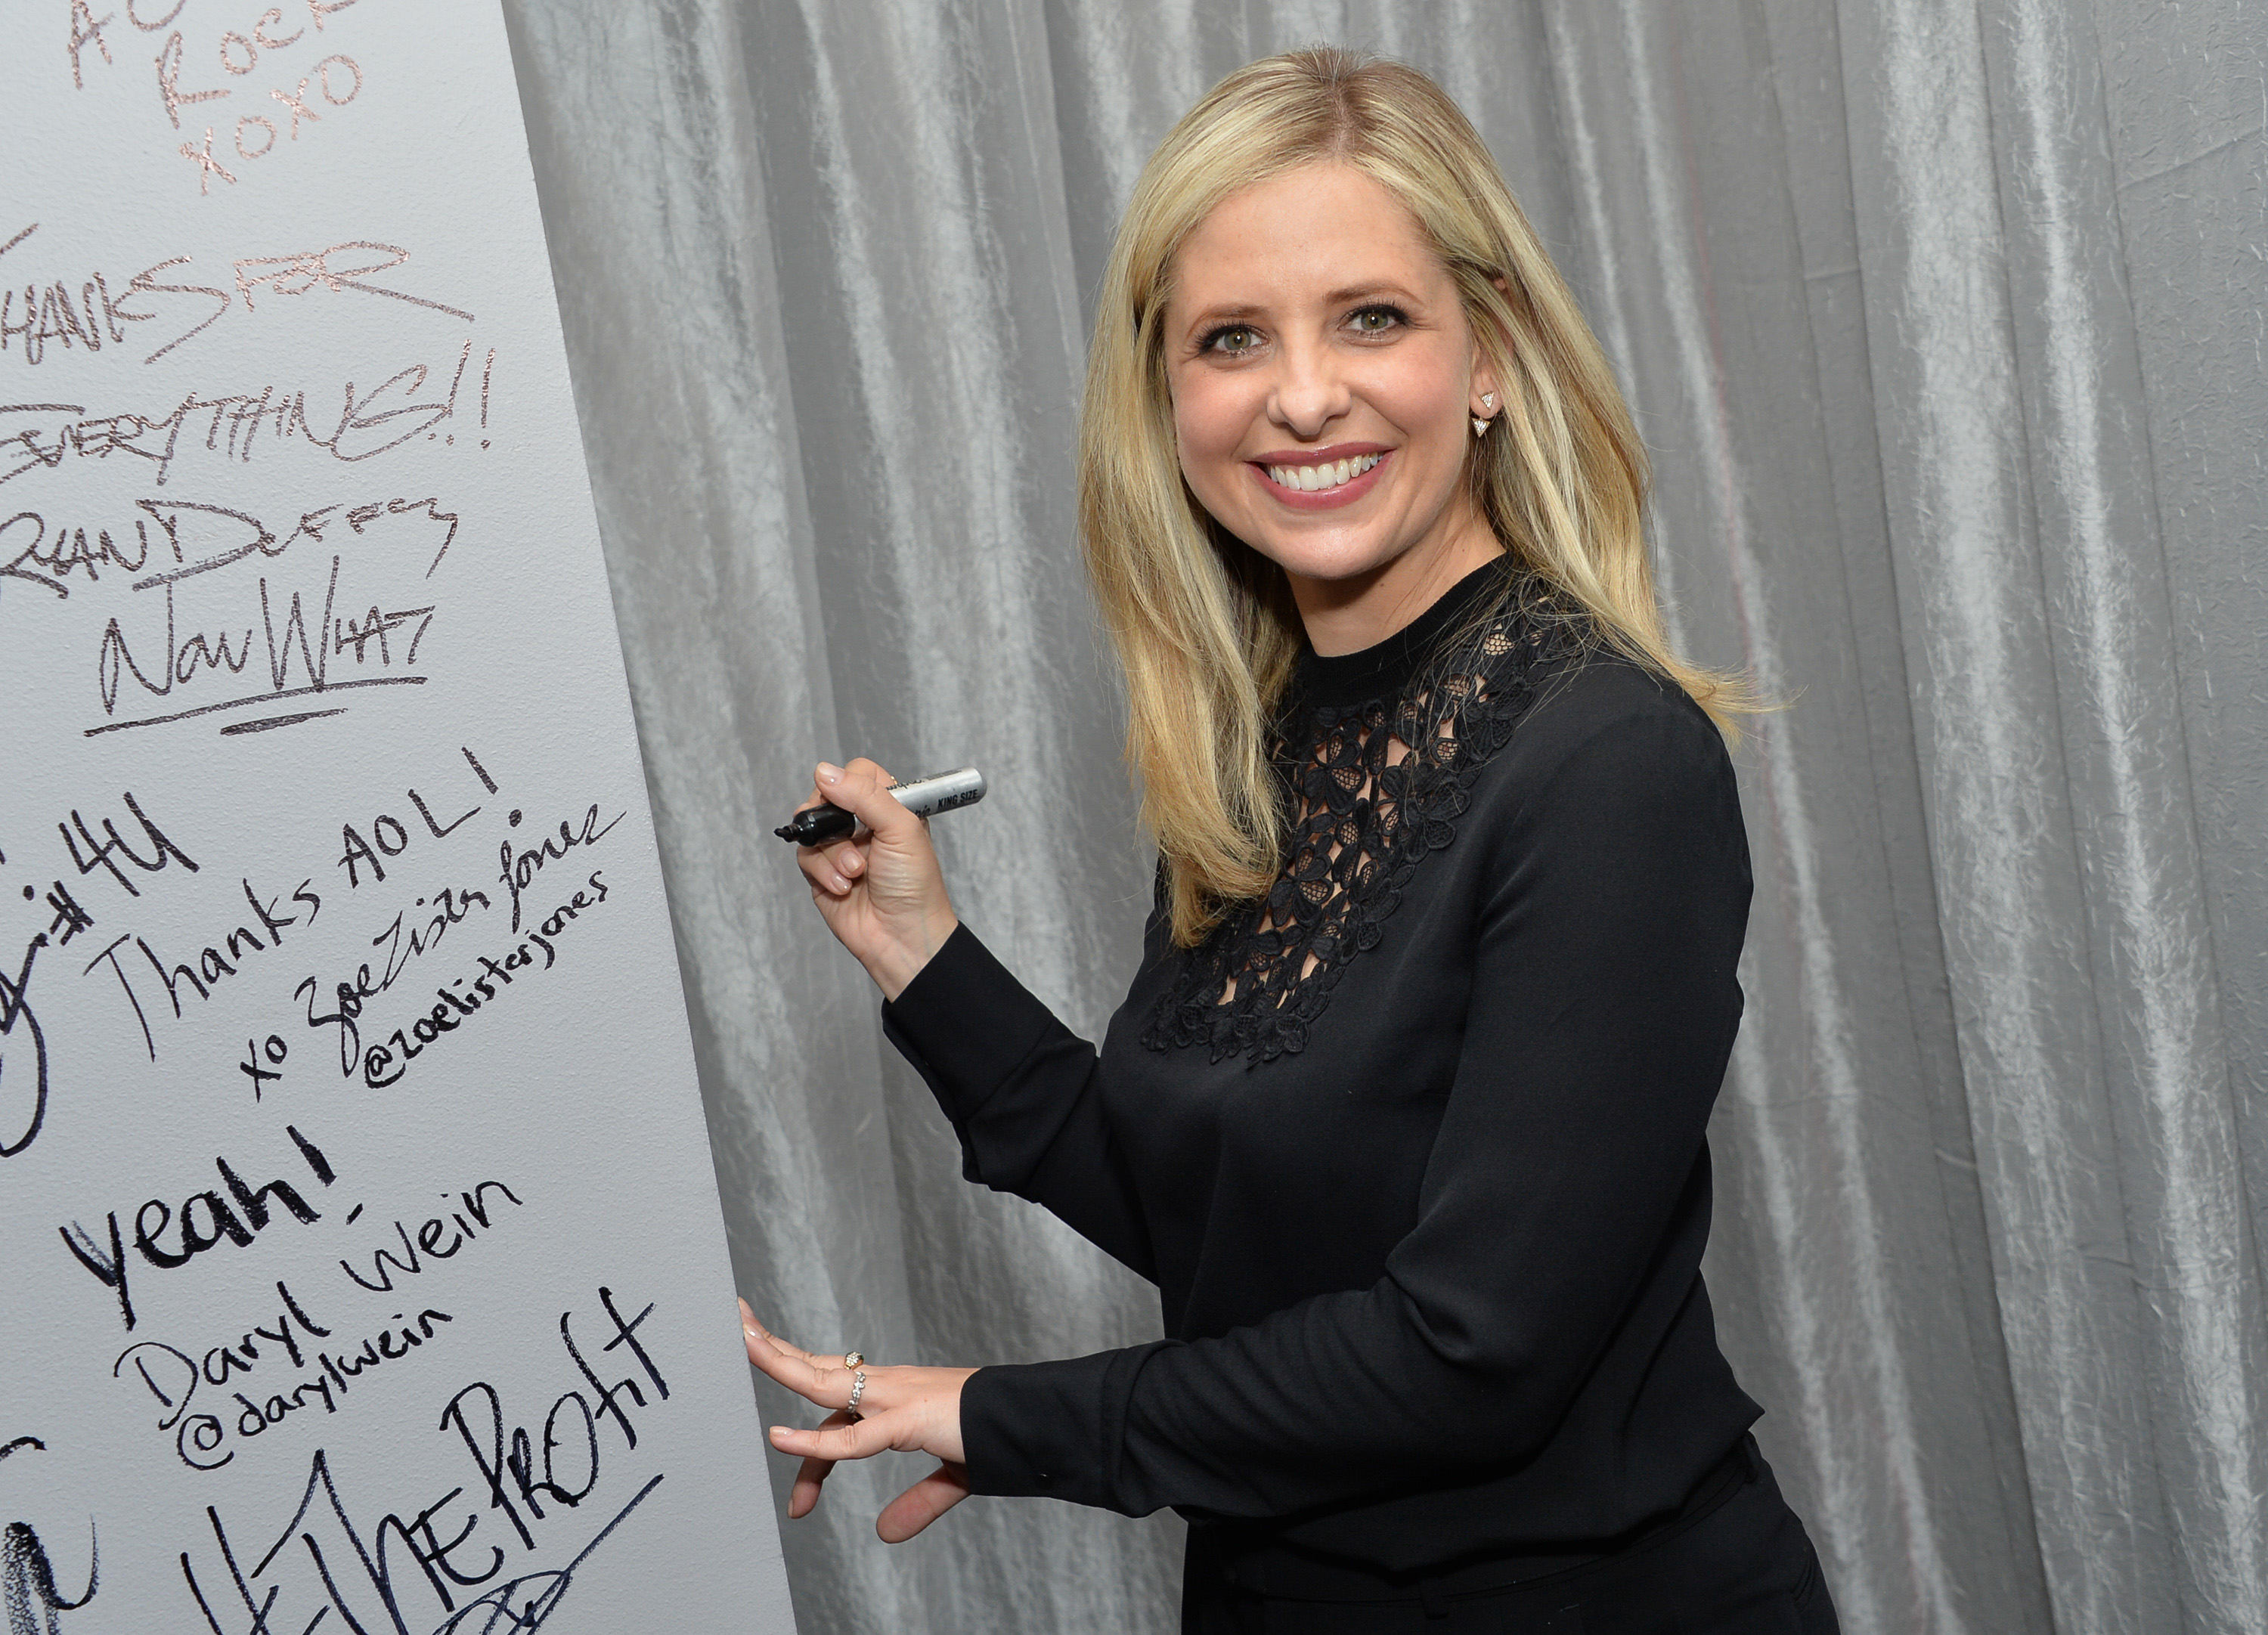 ROCK
XOXO
THANKS FOR
EVERYTHING!!
RYAN DUFFY
NOW WHAT
#4U
Thanks AOL!
xo Zoe Lister Jones
@zoelisterjones
yeah!
Daryl Wein
@darylwein
#THEPROfit
KING SIZE